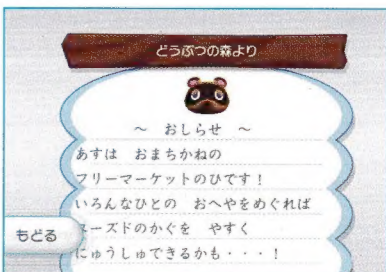 どうぶつの森より
～ おしらせ ～
あすは おまちかねの
フリーマーケットのひです！
いろんなひとの おへやをめぐれば
ユーズドのかぐを やすく
にゅうしゅできるかも・・・！
もどる